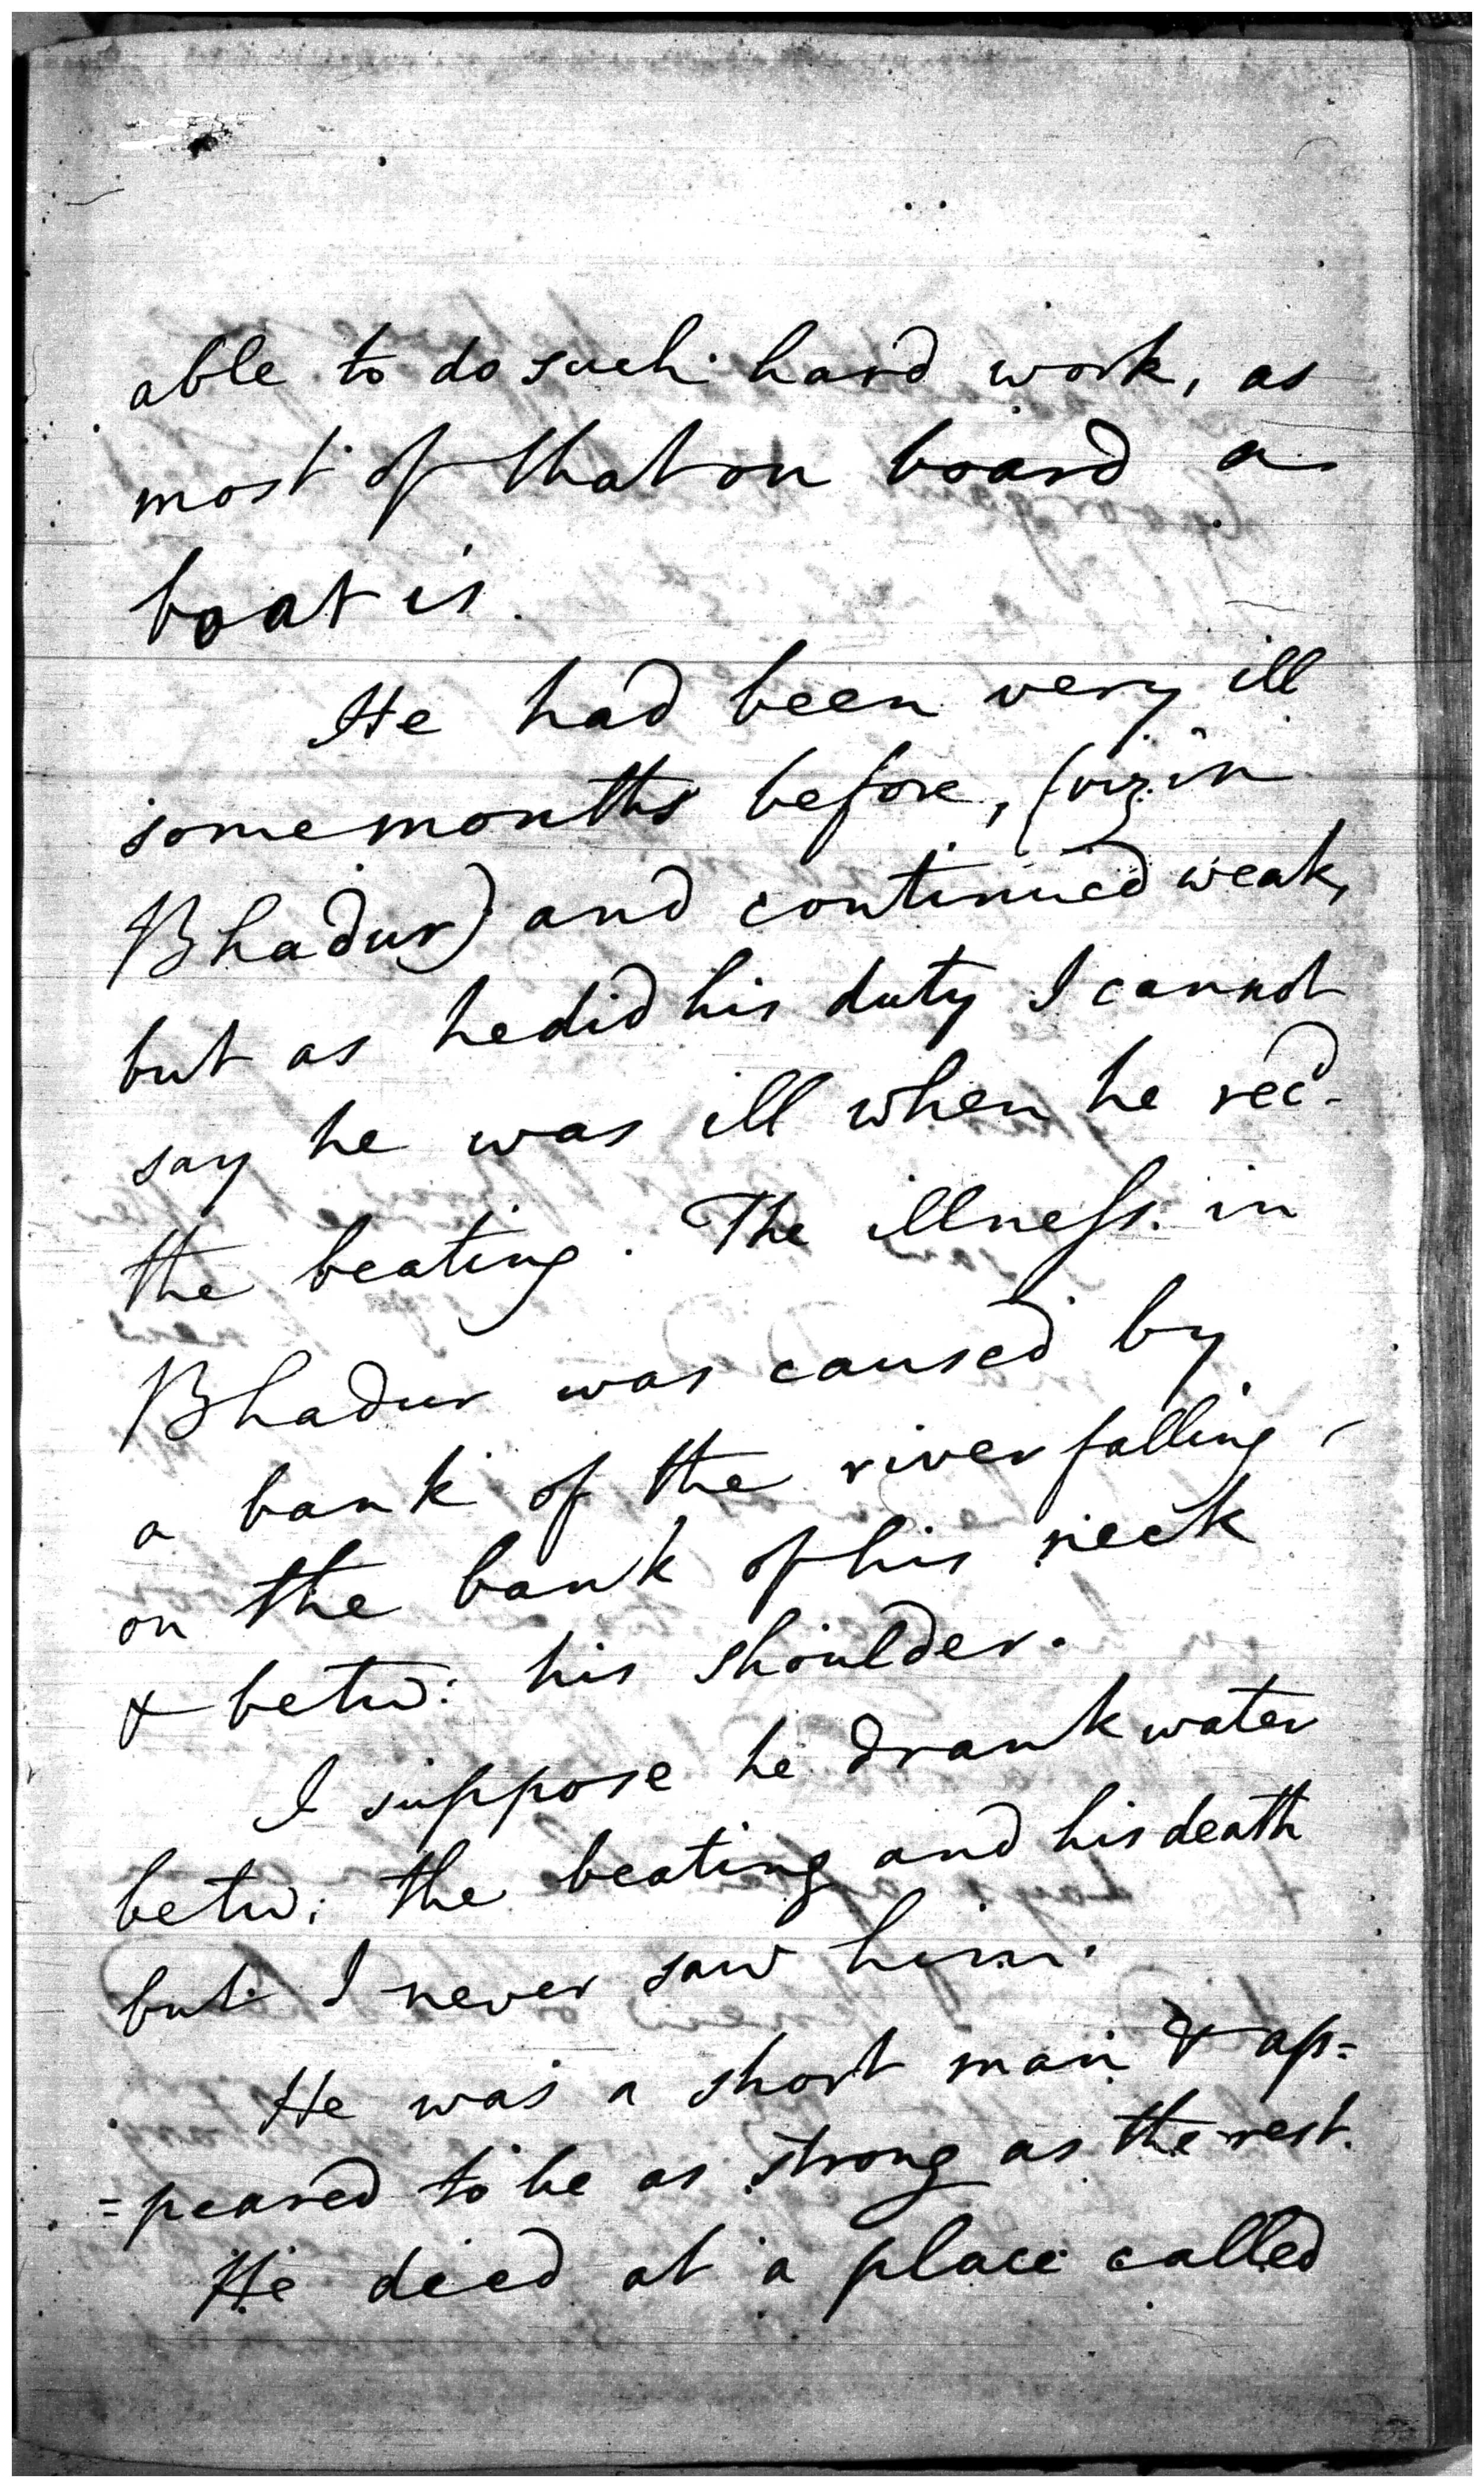 able to do such hard work, as
most of that on board a
boat is.
He had been very ill
some months before, (viz in
Bhadur) and continued weak,
but as he did his duty I cannot
say he was ill when he recd.
the beating. The illness in
Bhadur was caused by
a bank of the river falling
on the bank of his neck
& betw: his shoulder.
I suppose he drank water
betw: the beating and his death
but I never saw him.
He was a short man & ap=
=peared to be as strong as the rest.
He died at a place called